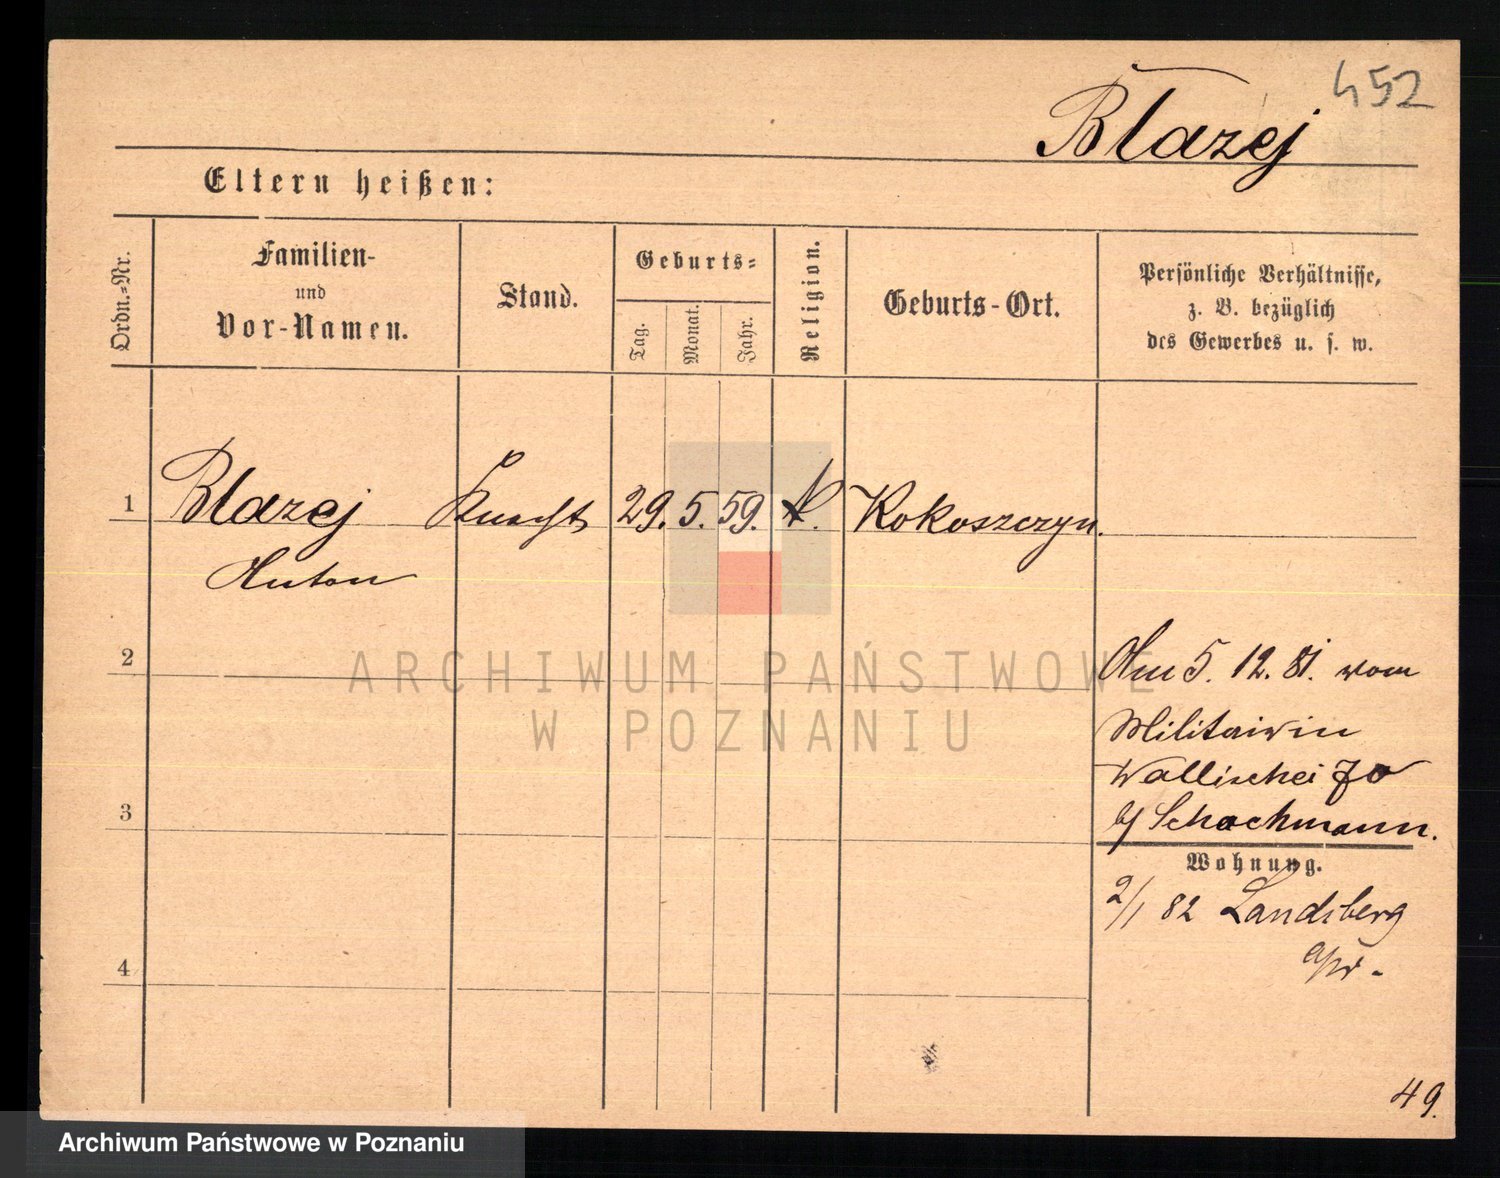 452
Blazej
Eltern heißen:
Ordn.-Nr.
Familien-
und
Vor-Namen.
Stand.
Geburts-
Tag.
Monat.
Jahr.
Religion.
Geburts-Ort.
Persönliche Verhältnisse,
z. B. bezüglich
des Gewerbes u. s. w.
1 Blazej Knecht 29. 5. 59. Kokoszczyn.
Anton
2
Am 5. 12. 81. vom
Militair in
Wallischei 70
b/ Schachmann.
3
Wohnung.
2/1 82 Landsberg
4
49.
ARCHIWUM PAŃSTWOWE
W POZNANIU
Archiwum Państwowe w Poznaniu